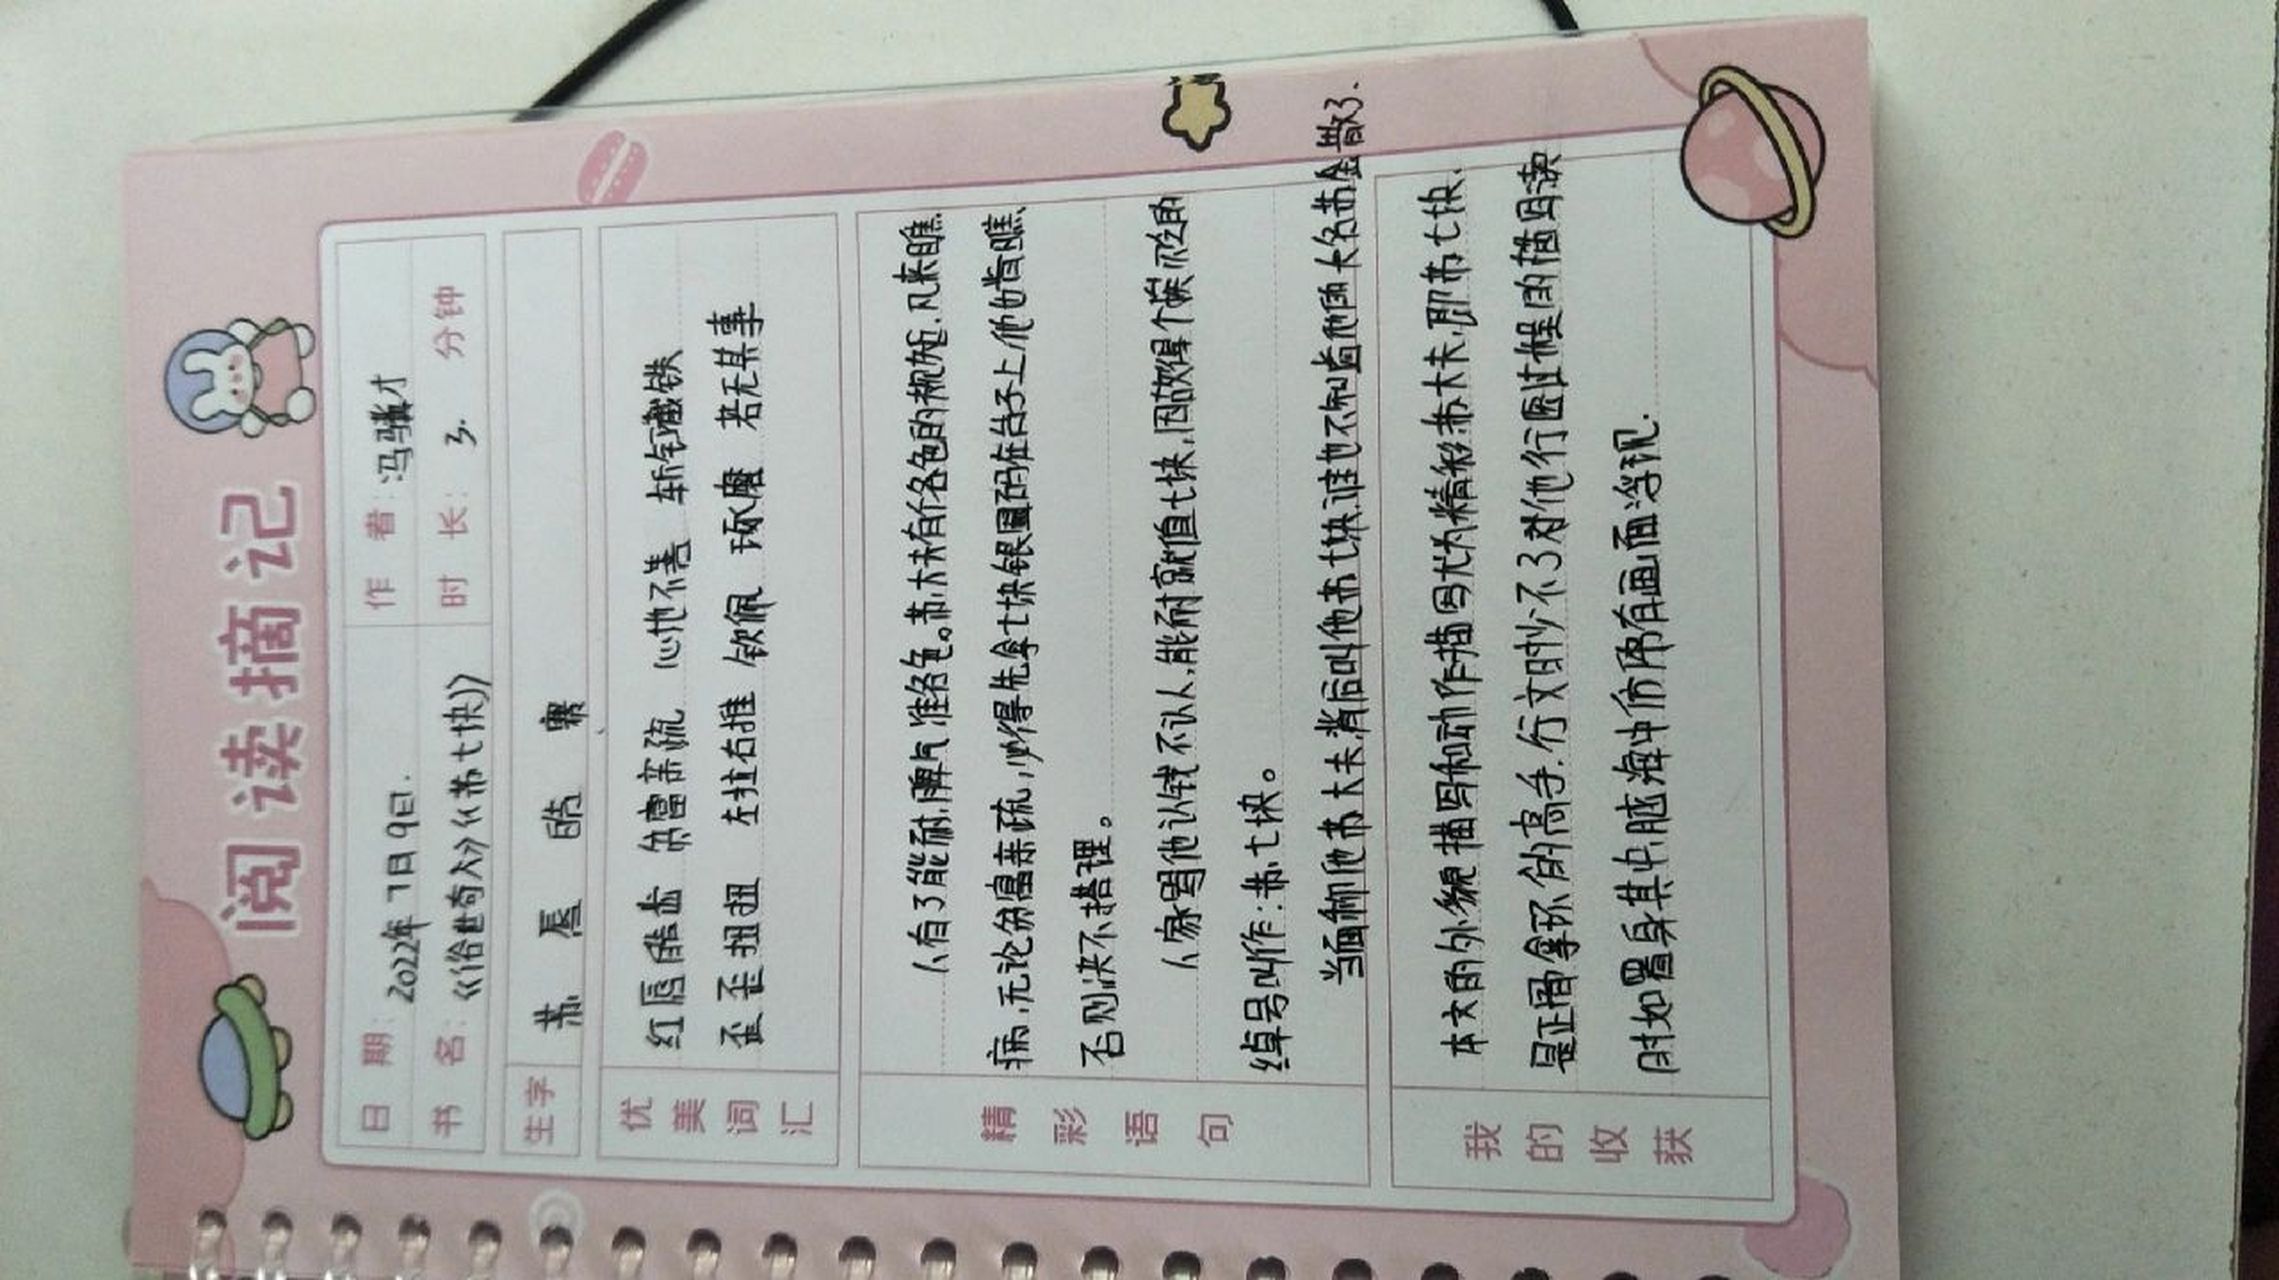 阅读摘记
日期: 2022年7月9日.
作者: 冯骥才
书名: 《俗世奇人》《苏七块》
时长: 3. 分钟
生字
苏 唇 皓
优美词汇
红唇皓齿 贫富亲疏 心地不善 斩钉截铁
歪歪扭扭 左拉右推 钦佩 琢磨 若无其事
精彩语句
人有了能耐,脾气准各色。苏大夫有各色的规矩.凡来瞧
病,无论贫富亲疏,必得先拿七块银圆码在台子上,他肯瞧、
否则决不搭理。
人家骂他认钱不认人,能耐就值七块,因故得个挨贬的
绰号叫作:苏七块。
当面称他苏大夫,背后叫他苏七块,谁也不知道他的大名苏金散了.
我的收获
本文的外貌描写和动作描写尤为精彩.苏大夫,即苏七块、
是正骨拿环的高手.行文时少不了对他行医过程的描写读
时如置身其中,脑海中仿佛有画面浮现.